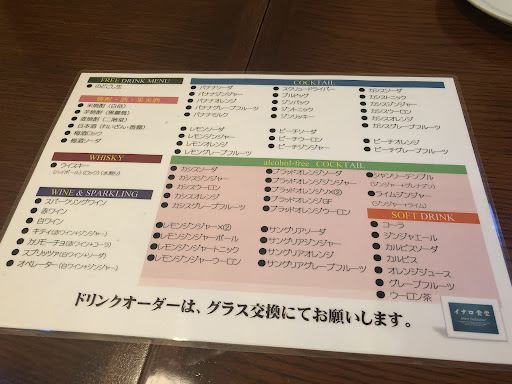 FREE DRINK MENU
のどごし生
焼酎・酒・果実酒
米焼酎(白岳)
芋焼酎(黒霧島)
麦焼酎(二階堂)
日本酒(れいざん・香露)
梅酒ロック
梅酒ソーダ
WHISKY
ウイスキー
(ハイボール)(ロック)(水割り)
WINE & SPARKLING
スパークリングワイン
赤ワイン
白ワイン
キティ(赤ワイン+ジンジャー)
カリモーチョ(赤ワイン+コーラ)
スプリッツァ(白ワイン+ソーダ)
オペレーター(白ワイン+ジンジャー)
COCKTAIL
バナナソーダ
バナナジンジャー
バナナオレンジ
バナナグレープフルーツ
バナナミルク
レモンソーダ
レモンジンジャー
レモンオレンジ
レモングレープフルーツ
スクリュードライバー
ブルドッグ
ジンバック
ジントニック
ジンリッキー
ピーチソーダ
ピーチジンジャー
ピーチウーロン
カシスソーダ
カシストニック
カシスジンジャー
カシスウーロン
カシスオレンジ
カシスグレープフルーツ
ピーチオレンジ
ピーチグレープフルーツ
alcohol-free COCKTAIL
カシスソーダ
カシスジンジャー
カシスウーロン
カシスオレンジ
カシスグレープフルーツ
レモンジンジャー×②
レモンジンジャーボール
レモンジンジャートニック
レモンジンジャーウーロン
ブラッドオレンジソーダ
ブラッドオレンジジンジャー
ブラッドオレンジ×②
ブラッドオレンジGF
ブラッドオレンジウーロン
サングリアソーダ
サングリアジンジャー
サングリアオレンジ
サングリアグレープフルーツ
シャンリーテンプル
(ジンジャー+グレナデン)
ライムジンジャー
(ジンジャー+ライム)
SOFT DRINK
コーラ
ジンジャエール
カルピスソーダ
カルピス
オレンジジュース
グレープフルーツ
ウーロン茶
ドリンクオーダーは、グラス交換にてお願いします。
イナロ食堂